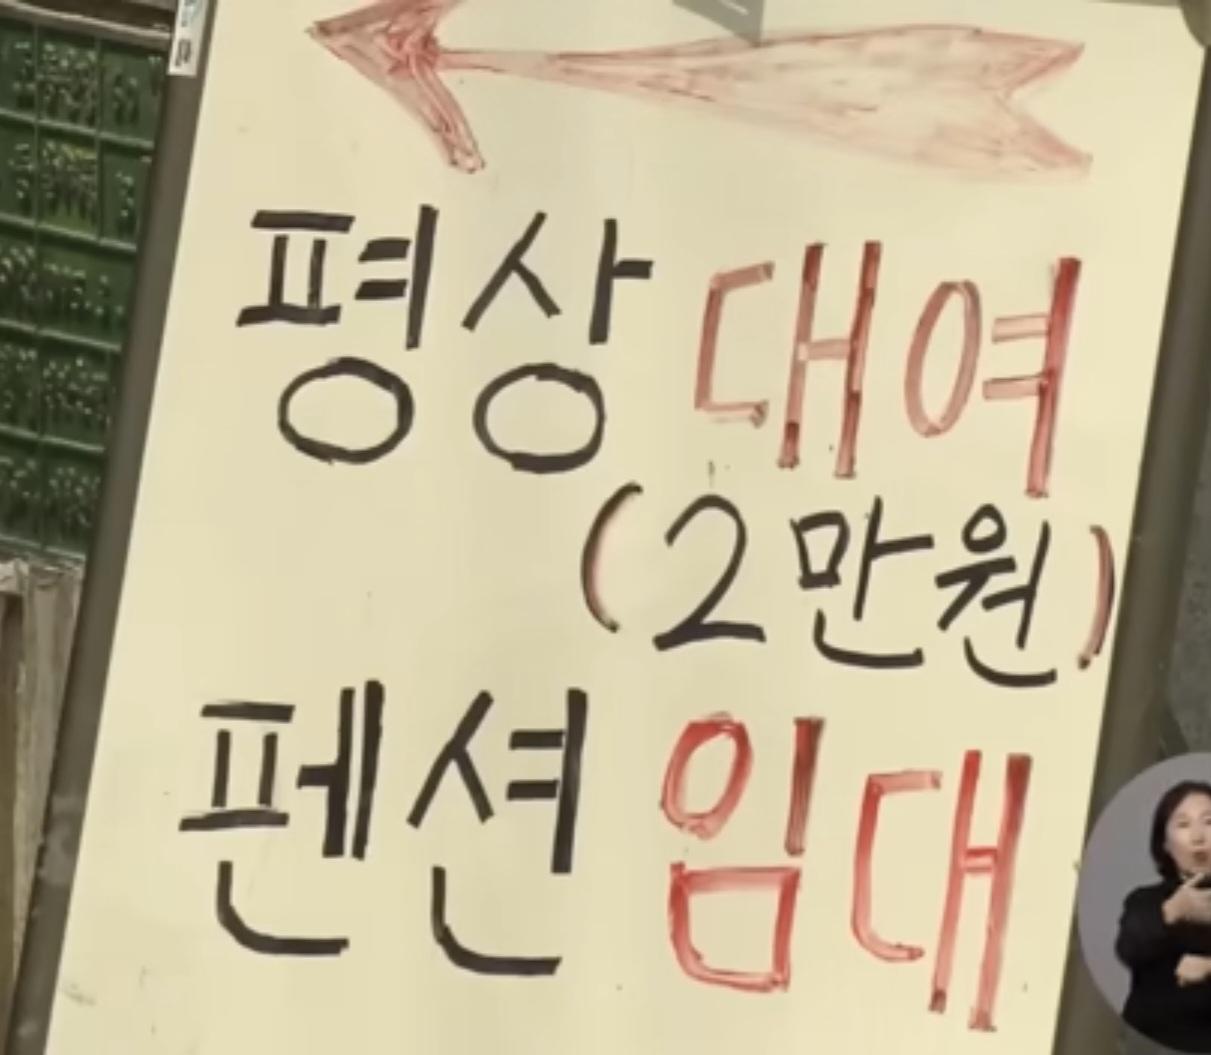 평상 대여
(2만원)
펜션 임대